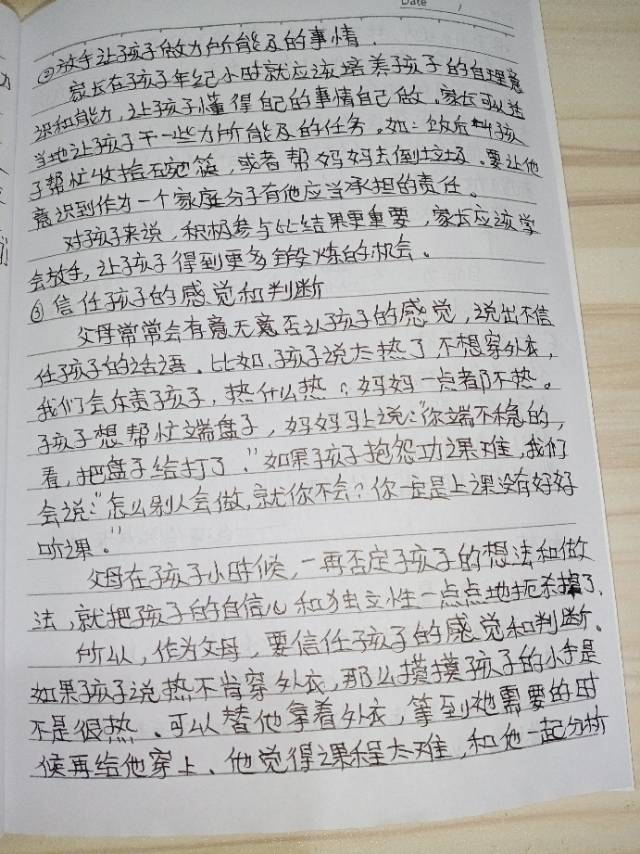 Date /
②放手让孩子做力所能及的事情.
家长在孩子年纪小时就应该培养孩子的自理意
识和能力,让孩子懂得自己的事情自己做。家长可以适
当地让孩子干一些力所能及的任务。如:饭后叫孩
子帮忙收拾碗筷,或者帮妈妈去倒垃圾。要让他
意识到作为一个家庭分子有他应当承担的责任。
对孩子来说,积极参与比结果更重要,家长应该学
会放手,让孩子得到更多锻炼的机会。
③信任孩子的感觉和判断
父母常常会有意无意否认孩子的感觉,说出不信
任孩子的话语。比如,孩子说太热了不想穿外衣,
我们会斥责孩子,热什么热?妈妈一点都不热。
孩子想帮忙端盘子,妈妈马上说:"你端不稳的,
看,把盘子给打了."如果孩子抱怨功课难,我们
会说:"怎么别人会做,就你不会?你一定是上课没有好好
听课。"
父母在孩子小时候,一再否定孩子的想法和做
法,就把孩子的自信心和独立性一点点地扼杀掉了.
所以,作为父母,要信任孩子的感觉和判断。
如果孩子说热不肯穿外衣,那么摸摸孩子的小手是
不是很热。可以替他拿着外衣,等到他需要的时
候再给他穿上、他觉得课程太难,和他一起分析